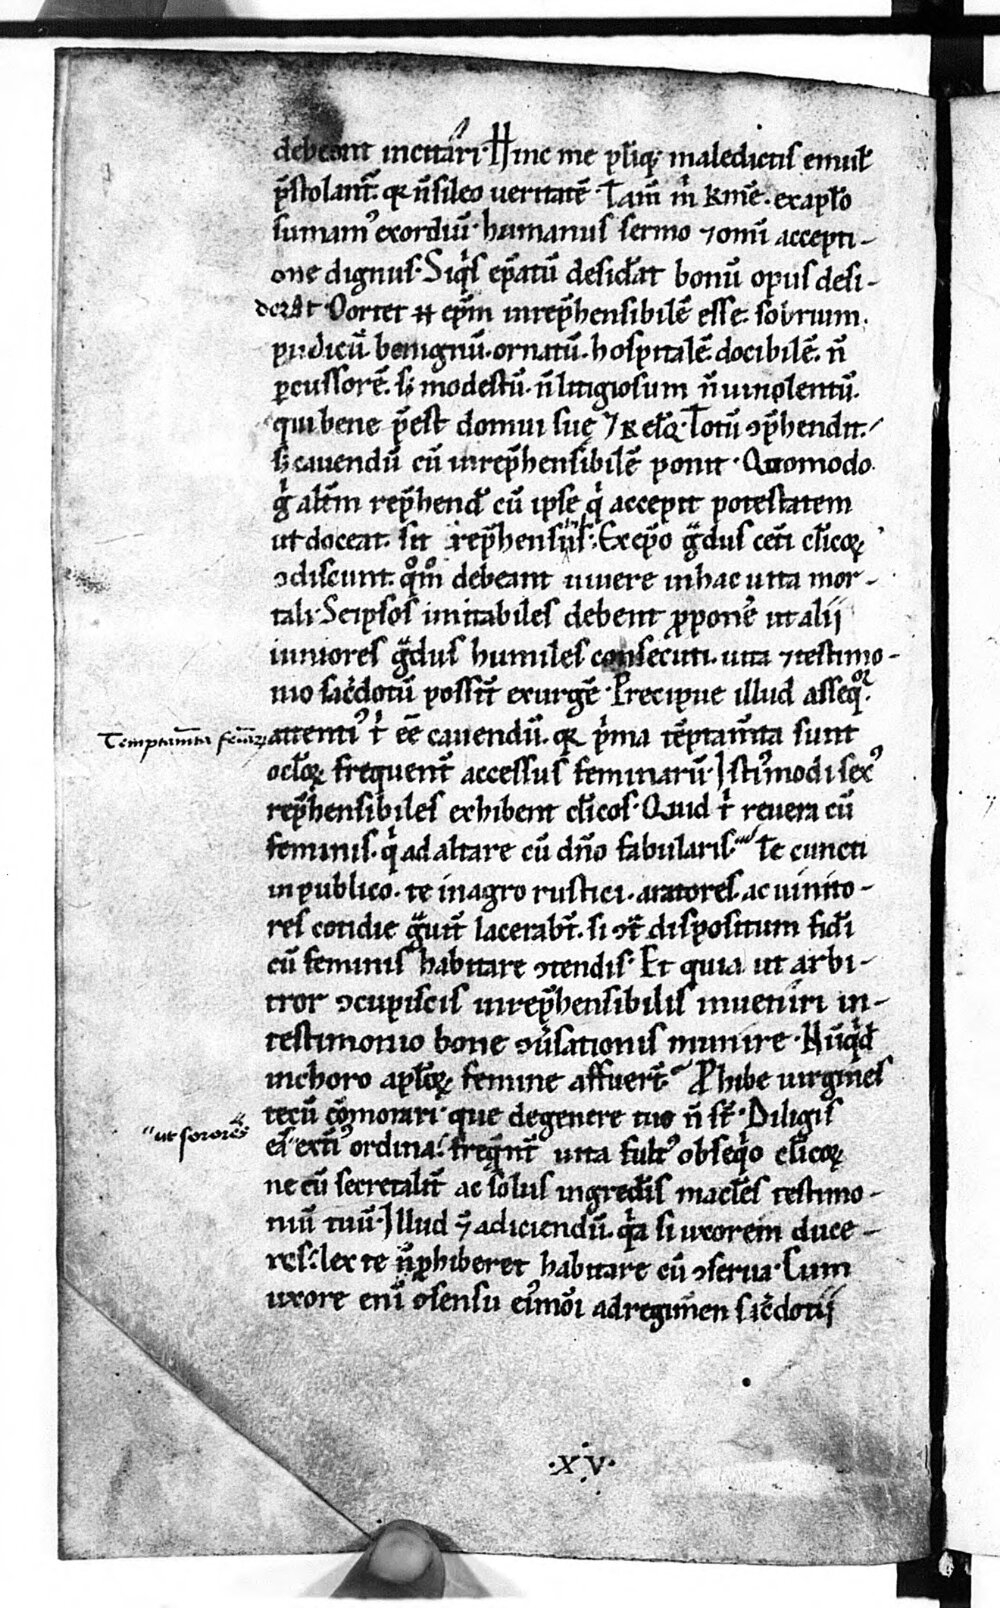 debeant incitari. Hinc me pleriq; maledictis emul̄
p̄stolant̄. qꝛ n̄ sileo ueritatē. Tam̄ m̄ kmē. ex aplo
sumam᷒ exordiū. humanus sermo ⁊ om̄i accepti-
one dignus. Siq's ep̄atū desid̄at bonū opus desi-
derat. Oortet  ep̄m inrep̄hensibilē esse. sobrium.
pudicū. benignū. ornatū. hospitalē. docibilē. n̄
p̄cussorē. sꝫ modestū. n̄ litigiosum n̄ uinolentū.
qui bene p̄est domui sue ⁊ Totū ꝯp̄hendit.
sꝫ cauendū cū inrep̄hensibilē ponit. Quomodo
g' alt̄m rep̄hend̄ cū ipse q' accepit potestatem
ut doceat. sit rep̄hensibilis. Ex ep̄o g̈dus cet̄i cl̄icoꝝ
ꝯdiscunt. qͦmͦ debeant uiuere in hac uita mor-
tali. Se ipsos imitabiles debent ꝓpone᷒ ut alii
iuniores g̈dus humiles consecuti. uita ⁊ testimo-
nio sac̄dotū possit̄ exurgē. Precipue illud asseq̄.
Temptam̄ta fem̄aꝝ
attenti᷒ t' eē cauendū. qꝛ p'ma tēptam̄ta sunt
ocl̄oꝝ frequent̄ accessus feminarū. Isti᷒modi sex᷒
rep̄hensibiles exhibent cl̄icos. Quid t' reuera cū
feminis. q' ad altare cū dn̄o fabularis. Te cuncti
in publico. te in agro rustici. aratores. ac uinito-
res cotidie g̈uit̄ lacerabt̄. si ꝯt̄ dispositum fid̄i
cū feminis habitare ꝯtendis. Et quia ut arbi-
tror ꝯcupiscis inrep̄hensibilis inueniri in
testimonio bone ꝯu̓sationis munire. Nūq'd
in choro apl̄oꝝ femine affuer̄t. Phibe uirgines
tecū cōmorari. que de genere tuo n̄ st̄. Diligis
ut sorores
eas ext᷒ ordina. freq̄nt̄ uita fult᷒ obseq'o cl̄icoꝝ
ne cū secretalit̄ ac solus ingredīs macl̄es testimo-
niū tuū. Illud ⁊ adiciendū. q'a si uxorem duce-
res. lex te n̄ ꝓhiberet habitare cū ꝯserua. Cum
uxore eni ꝯsensu ei᷒mo'i ad regimen sac̄dotii
.XV.